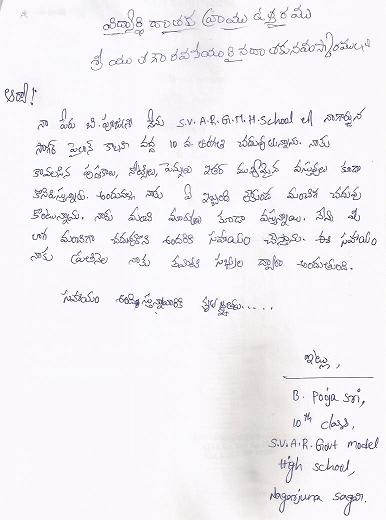 విద్యార్థి దాతకు వ్రాయు ఉత్తరము
శ్రీయుత గౌరవనీయులైన దాతకు నమస్కారములు
అయ్యా!
నా పేరు బి. పూజశ్రీ నేను S.V.A.R.G.M.H.School లో నాగార్జున
సాగర్ పైలాన్ కాలని వద్ద 10 వ. తరగతి చదువుచున్నాను. నాకు
కావలసిన పుస్తకాలు, నోట్బుక్స్, పెన్నులు ఇతర ముఖ్యమైన వస్తువులు కూడా
కొనిస్తున్నారు. అందువల్ల నాకు ఏ ఇబ్బంది లేకుండ మంచిగ చదువు
కొంటున్నాను. నాకు మంచి మార్కులు కూడా వస్తున్నాయి. నేను మీ
లాగ మంచిగా చదువుకొని ఇందరికి సహాయం చేస్తాను. ఈ సహాయం
నాకు ప్రతినెల నాకు కమిటి సభ్యుల ద్వారా అందుతుంది.
సహాయం అందిస్తున్నవారికి కృతజ్ఞతలు.....
ఇట్లు,
B. Pooja sri,
10th class,
S.V.A.R. Govt model
High school,
Nagarjuna sagar.